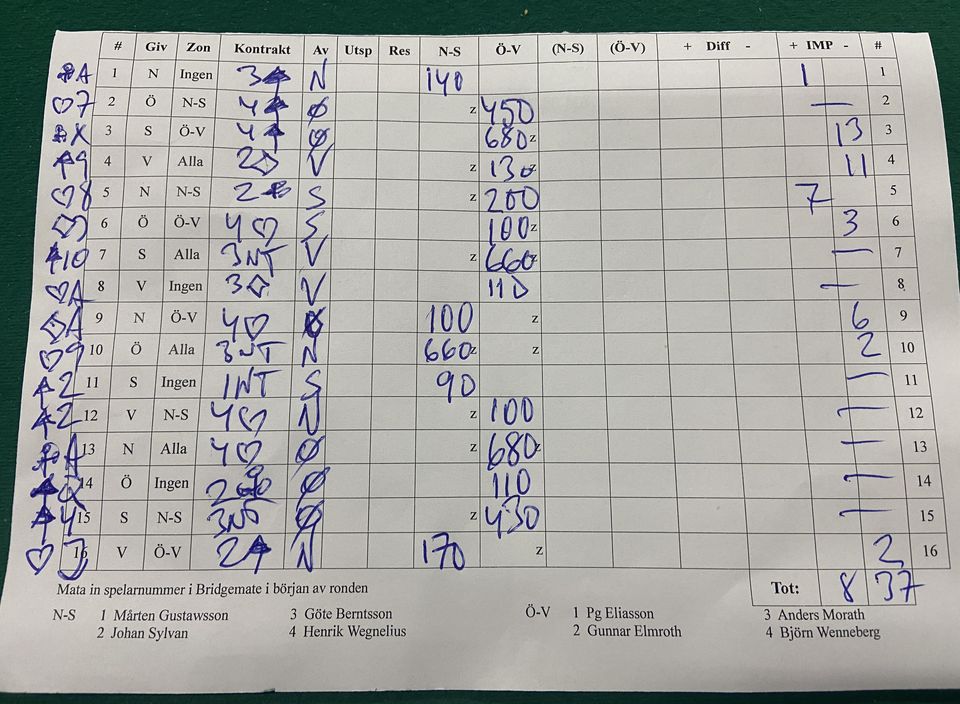 # Giv Zon Kontrakt Av Utsp Res N-S Ö-V (N-S) (Ö-V) + Diff - + IMP - #
♣A 1 N Ingen 3♠ N 140 1 1
♡7 2 Ö N-S 4♠ Ö z 450 — 2
♣X 3 S Ö-V 4♠ Ö 680 z 13 3
♠9 4 V Alla 2♢ V z 130 z 11 4
♡8 5 N N-S 2♣ S z 200 7 5
6 Ö Ö-V 4♡ S 100 z 3 6
♠10 7 S Alla 3NT V z 660 z — 7
♡A 8 V Ingen 3♢ V 110 — 8
♢A 9 N Ö-V 4♡ Ö 100 z 6 9
♡9 10 Ö Alla 3NT N 660 z z 2 10
♠2 11 S Ingen 1NT S 90 — 11
♠2 12 V N-S 4♡ N z 100 — 12
♣A 13 N Alla 4♡ Ö z 680 z — 13
14 Ö Ingen Ö 110 — 14
♠4 15 S N-S 3NT Ö z 430 — 15
♡J 16 V Ö-V 2♠ N 170 z 2 16
Tot: 8 37
Mata in spelarnummer i Bridgemate i början av ronden
N-S 1 Mårten Gustawsson 3 Göte Berntsson Ö-V 1 Pg Eliasson 3 Anders Morath
2 Johan Sylvan 4 Henrik Wegnelius 2 Gunnar Elmroth 4 Björn Wenneberg